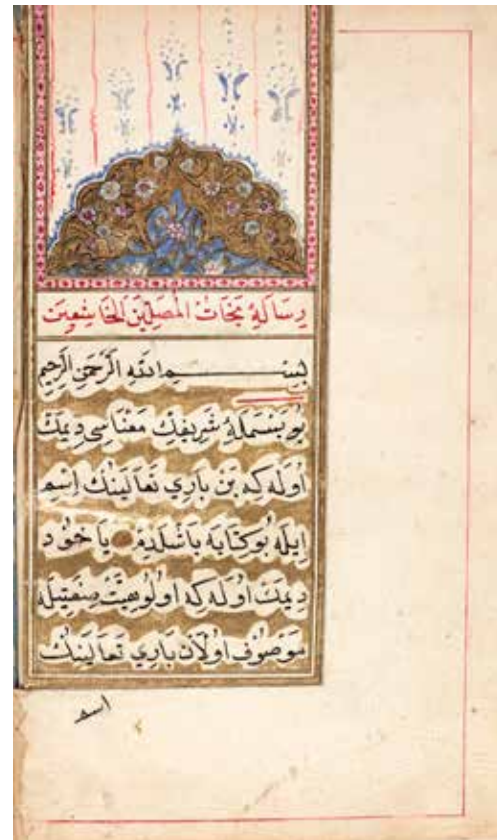 رِسَالَهٔ نَجَاتُ الْمُصَلِّينَ الْخَاشِعِينَ
بِسْمِ اللّٰهِ الرَّحْمٰنِ الرَّحِيمِ
بُو بَسْمَلَهٔ شَرِيفِكْ مَعْنَاسِى دِيمَكْ
اُولَه كِه بَنْ بَارِي تَعَالَينُكْ اِسْمِ
اِيلَه بُو كِتَابَه بَاشْلَدِمْ يَا خُودْ
دِيمَكْ اُولَه كِه اُولُوهِيَّتْ صِفَتِيلَه
مَوْصُوفْ اُولَانْ بَارِي تَعَالَينُكْ
اسم